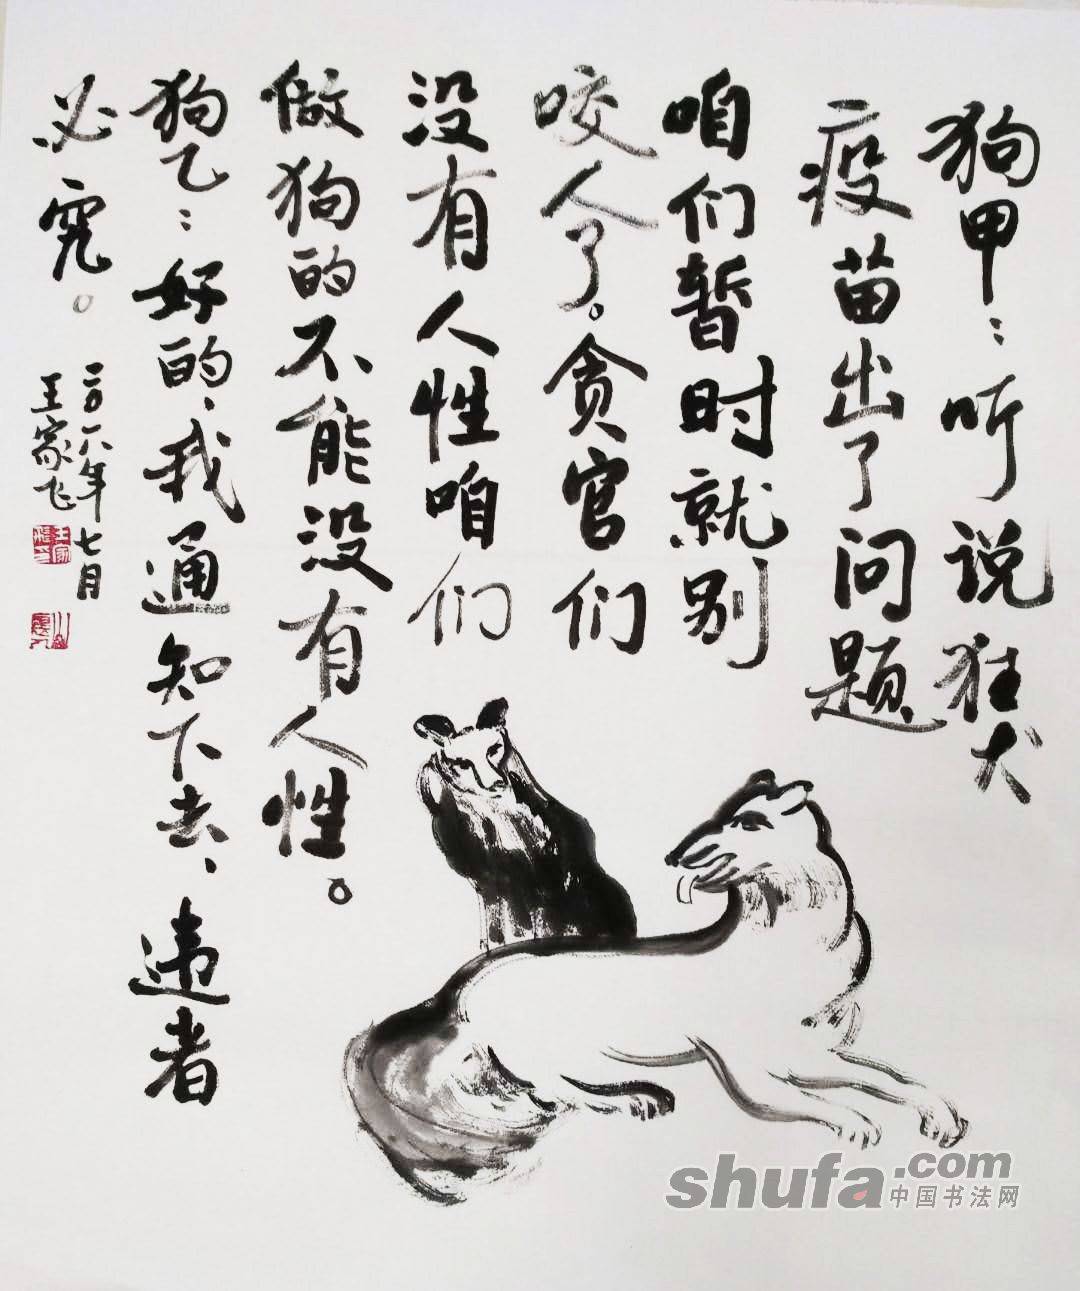 狗甲：听说狂犬
疫苗出了问题
咱们暂时就别
咬人了。贪官们
没有人性咱们
做狗的不能没有人性。
狗乙：好的、我通知下去、违者
必究。
二〇一八年七月
王家飞
shufa.com
中国书法网